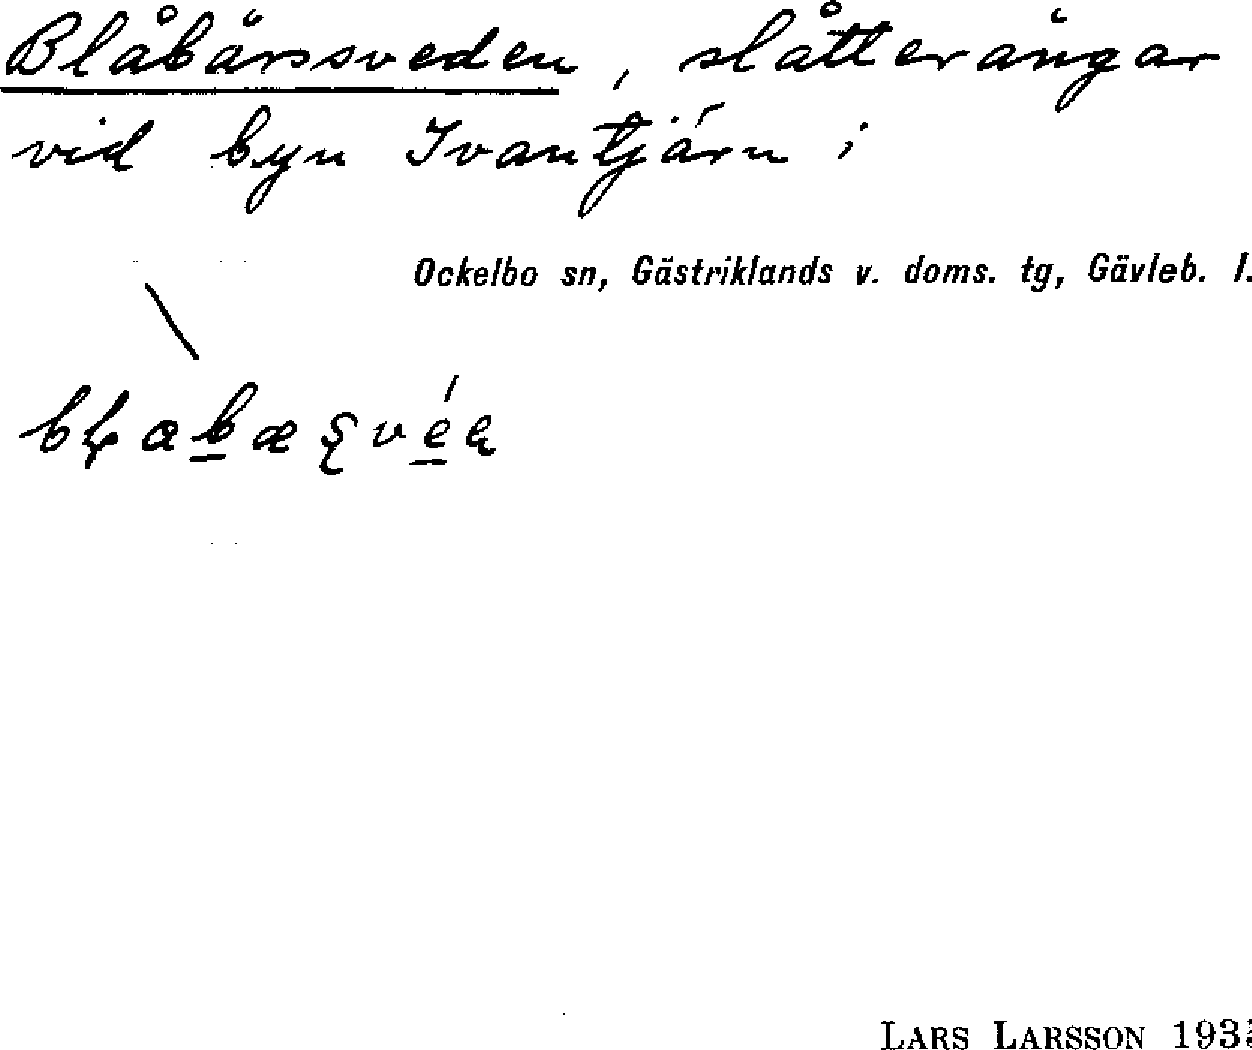 Blåbärssveden, slåtterängar
vid byn Ivantjärn i
Ockelbo sn, Gästriklands v. doms. tg, Gävleb. l.
LARS LARSSON